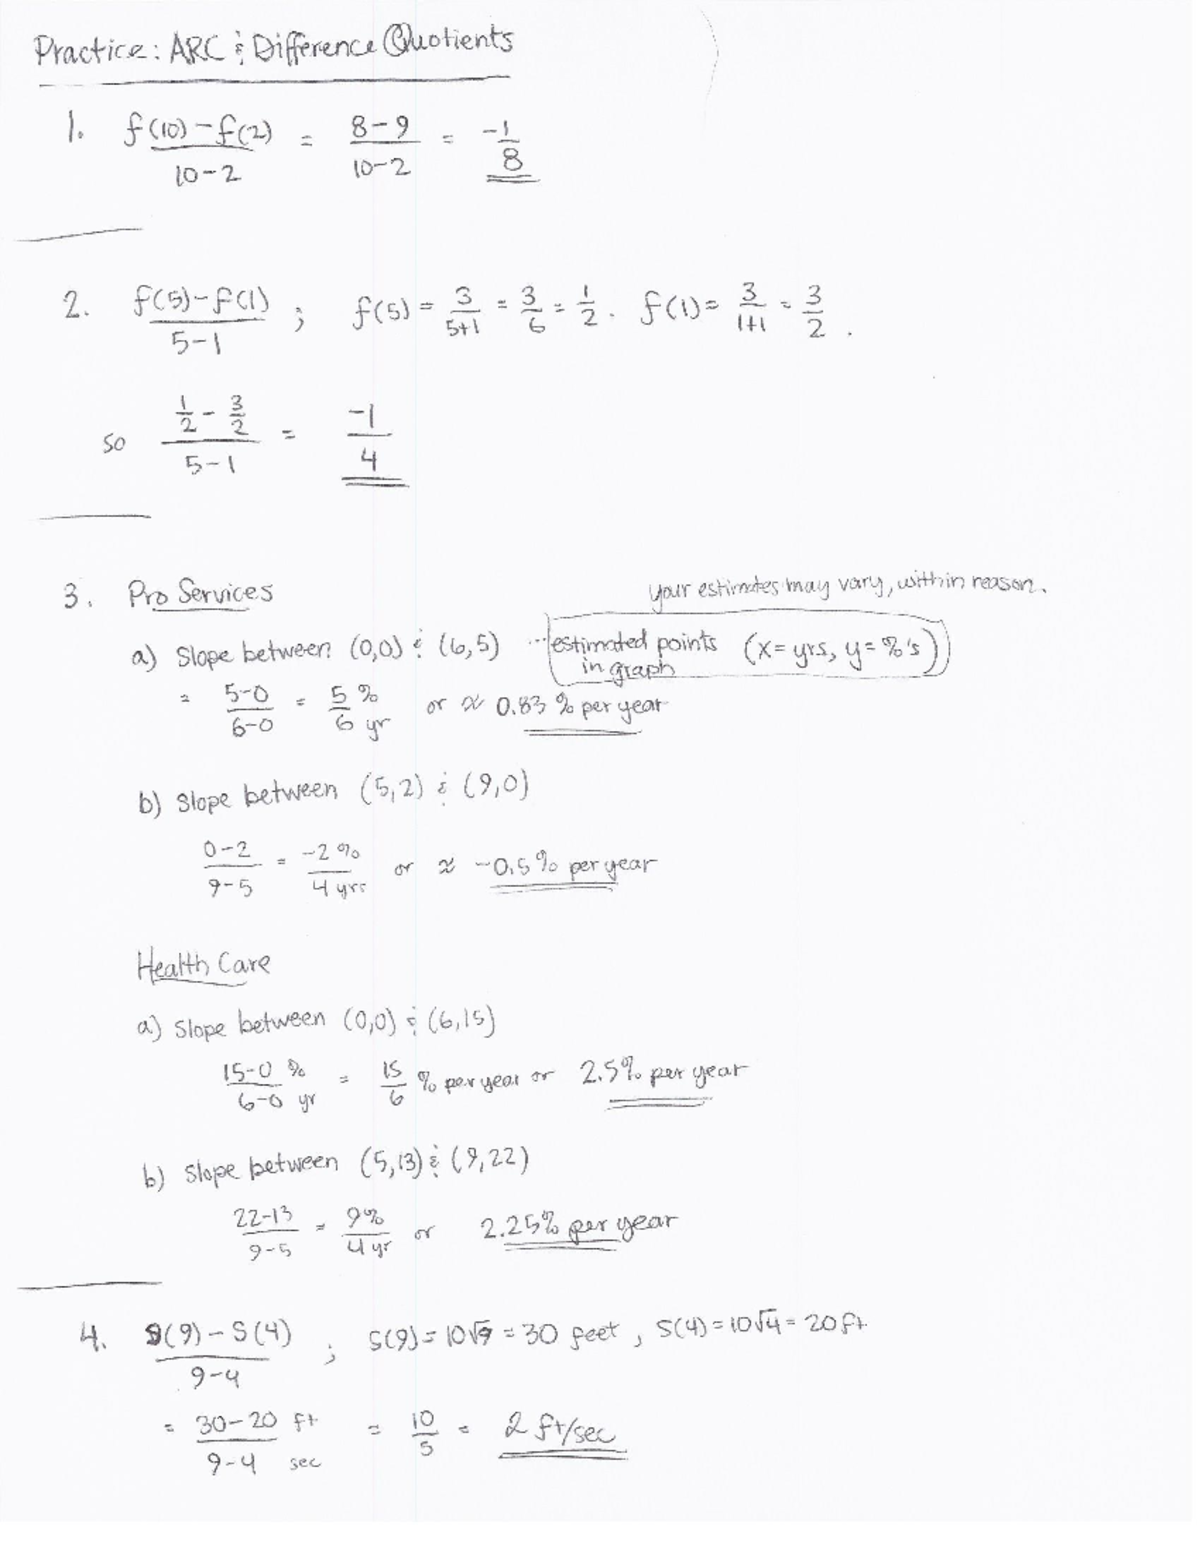 Practice: ARC & Difference Quotients
1. f(10)-f(2) / 10-2 = 8-9 / 10-2 = -1/8
2. f(5)-f(1) / 5-1 ; f(5) = 3/5+1 = 3/6 = 1/2. f(1) = 3/1+1 = 3/2.
so 1/2 - 3/2 / 5-1 = -1/4
3. Pro Services
your estimates may vary, within reason.
a) Slope between (0,0) & (6,5) ...estimated points in graph (x=yrs, y=%'s)
= 5-0 / 6-0 = 5 % / 6 yr or ≈ 0.83 % per year
b) Slope between (5,2) & (9,0)
0-2 / 9-5 = -2 % / 4 yrs or ≈ -0.5 % per year
Health Care
a) Slope between (0,0) & (6,15)
15-0 % / 6-0 yr = 15/6 % per year or 2.5% per year
b) Slope between (5,13) & (9,22)
22-13 / 9-5 = 9% / 4 yr or 2.25% per year
4. S(9)-S(4) / 9-4 ; S(9) = 10√9 = 30 feet, S(4) = 10√4 = 20 ft
= 30-20 ft / 9-4 sec = 10/5 = 2 ft/sec